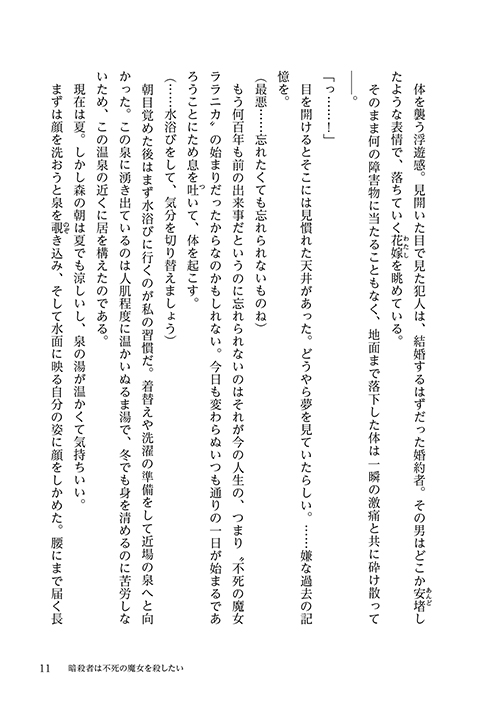 体を襲う浮遊感。見開いた目で見た犯人は、結婚するはずだった婚約者。その男はどこか安堵し
たような表情で、落ちていく花嫁を眺めている。
そのまま何の障害物に当たることもなく、地面まで落下した体は一瞬の激痛と共に砕け散って
――。
「っ……！」
目を開けるとそこには見慣れた天井があった。どうやら夢を見ていたらしい。……嫌な過去の記
憶を。
（最悪……忘れたくても忘れられないものね）
もう何百年も前の出来事だというのに忘れられないのはそれが今の人生の、つまり〝不死の魔女
ララニカ〟の始まりだったからなのかもしれない。今日も変わらぬいつも通りの一日が始まるであ
ろうことにため息を吐いて、体を起こす。
（……水浴びをして、気分を切り替えましょう）
朝目覚めた後はまず水浴びに行くのが私の習慣だ。着替えや洗濯の準備をして近場の泉へと向
かった。この泉に湧き出ているのは人肌程度に温かいぬるま湯で、冬でも身を清めるのに苦労しな
いため、この温泉の近くに居を構えたのである。
現在は夏。しかし森の朝は夏でも涼しいし、泉の湯が温かくて気持ちいい。
まずは顔を洗おうと泉を覗き込み、そして水面に映る自分の姿に顔をしかめた。腰にまで届く長
11 暗殺者は不死の魔女を殺したい